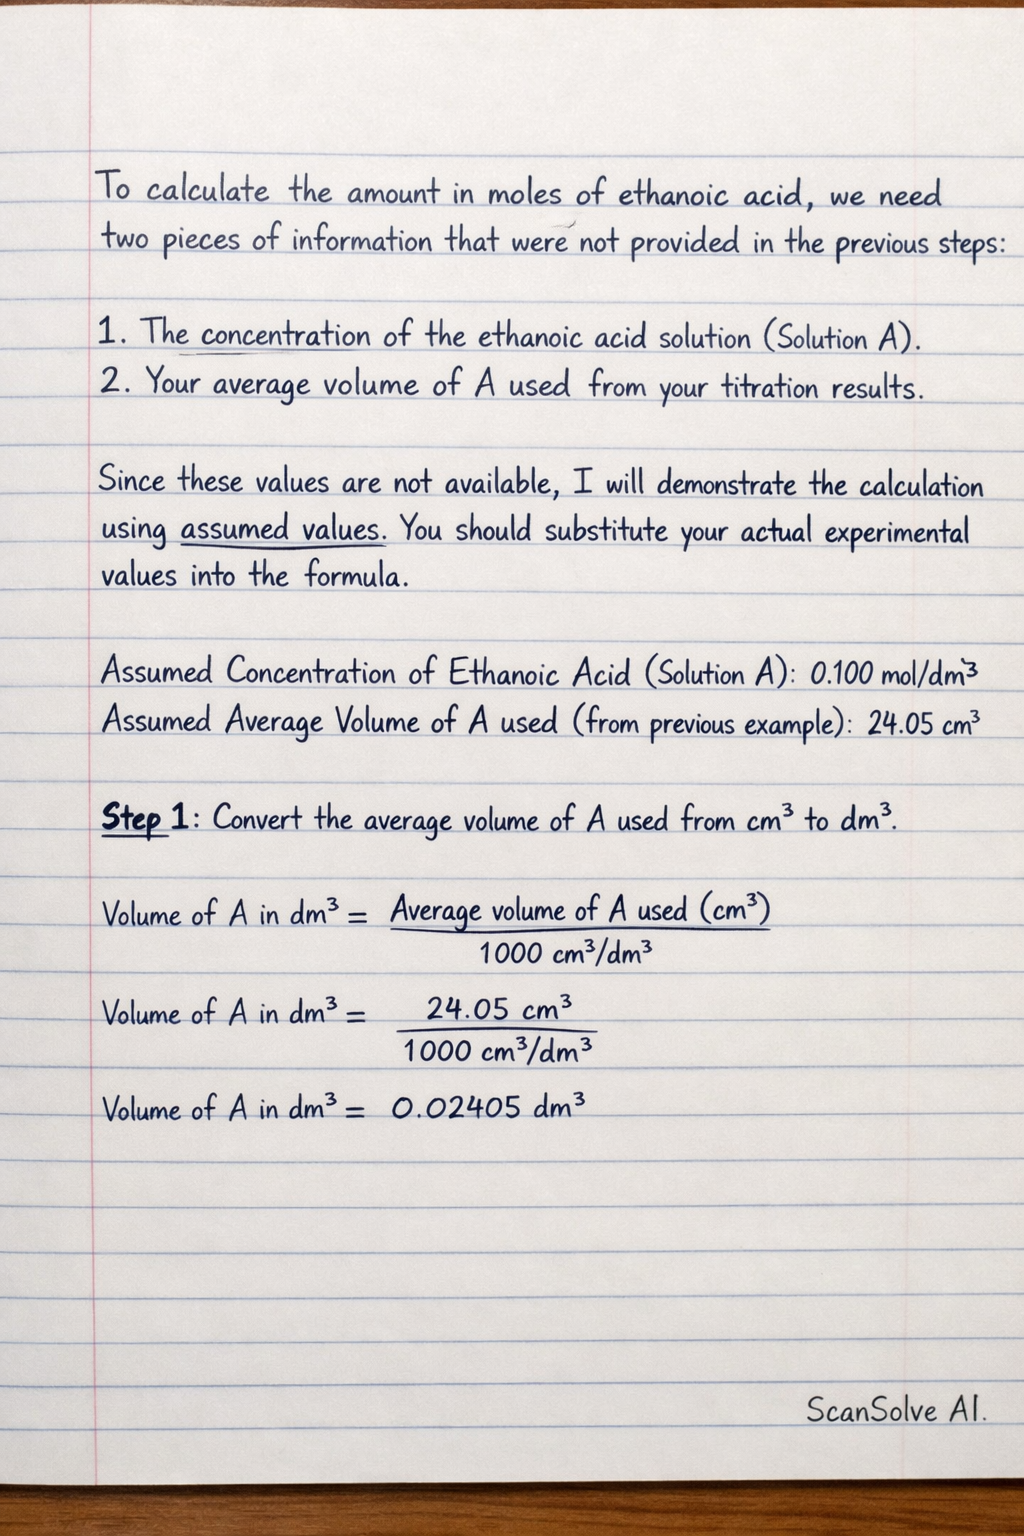 To calculate the amount in moles of ethanoic acid, we need
two pieces of information that were not provided in the previous steps:
1. The concentration of the ethanoic acid solution (Solution A).
2. Your average volume of A used from your titration results.
Since these values are not available, I will demonstrate the calculation
using assumed values. You should substitute your actual experimental
values into the formula.
Assumed Concentration of Ethanoic Acid (Solution A): 0.100 mol/dm³
Assumed Average Volume of A used (from previous example): 24.05 cm³
Step 1: Convert the average volume of A used from cm³ to dm³.
Volume of A in dm³ = Average volume of A used (cm³)
1000 cm³/dm³
Volume of A in dm³ = 24.05 cm³
1000 cm³/dm³
Volume of A in dm³ = 0.02405 dm³
ScanSolve AI.